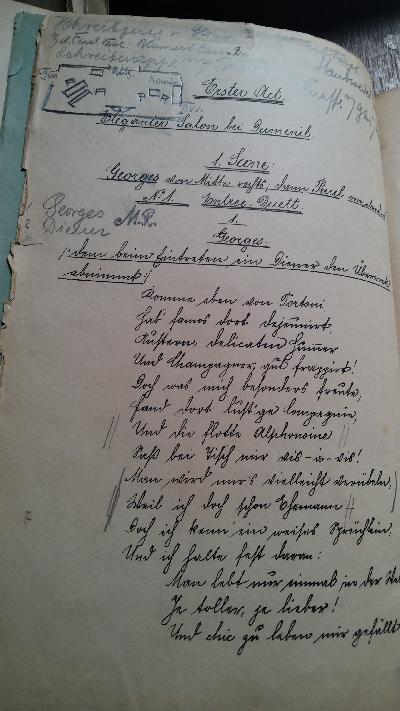 Schreibzeug
Schreibmappe
-2-
Erster Act.
Eleganter Salon bei Dumenil.
1. Scene:
Georges von Mitte rechts, dann
Nº 1. Entrée-Duett.
Georges
Diener
M.R.
1.
Georges:
/: dem beim Eintreten ein Diener den Überrock
abnimmt :/
Komme eben von Tortoni
Hab' famos dort dejeunirt,
Austern, delicaten Hummer
Und Champagner, gut frappirt!
Doch was mich besonders freute,
Fand dort lust'ge Compagnie,
Und die flotte Alphonsine
Saß bei Tisch mir vis-à-vis!
(Man wird mir's vielleicht verübeln,)
Weil ich doch schon Ehemann
Doch ich kenn' ein weises Sprüchlein,
Und ich halte fest daran:
Man lebt nur einmal in der
Je toller, je lieber!
Und chic zu leben mir gefällt